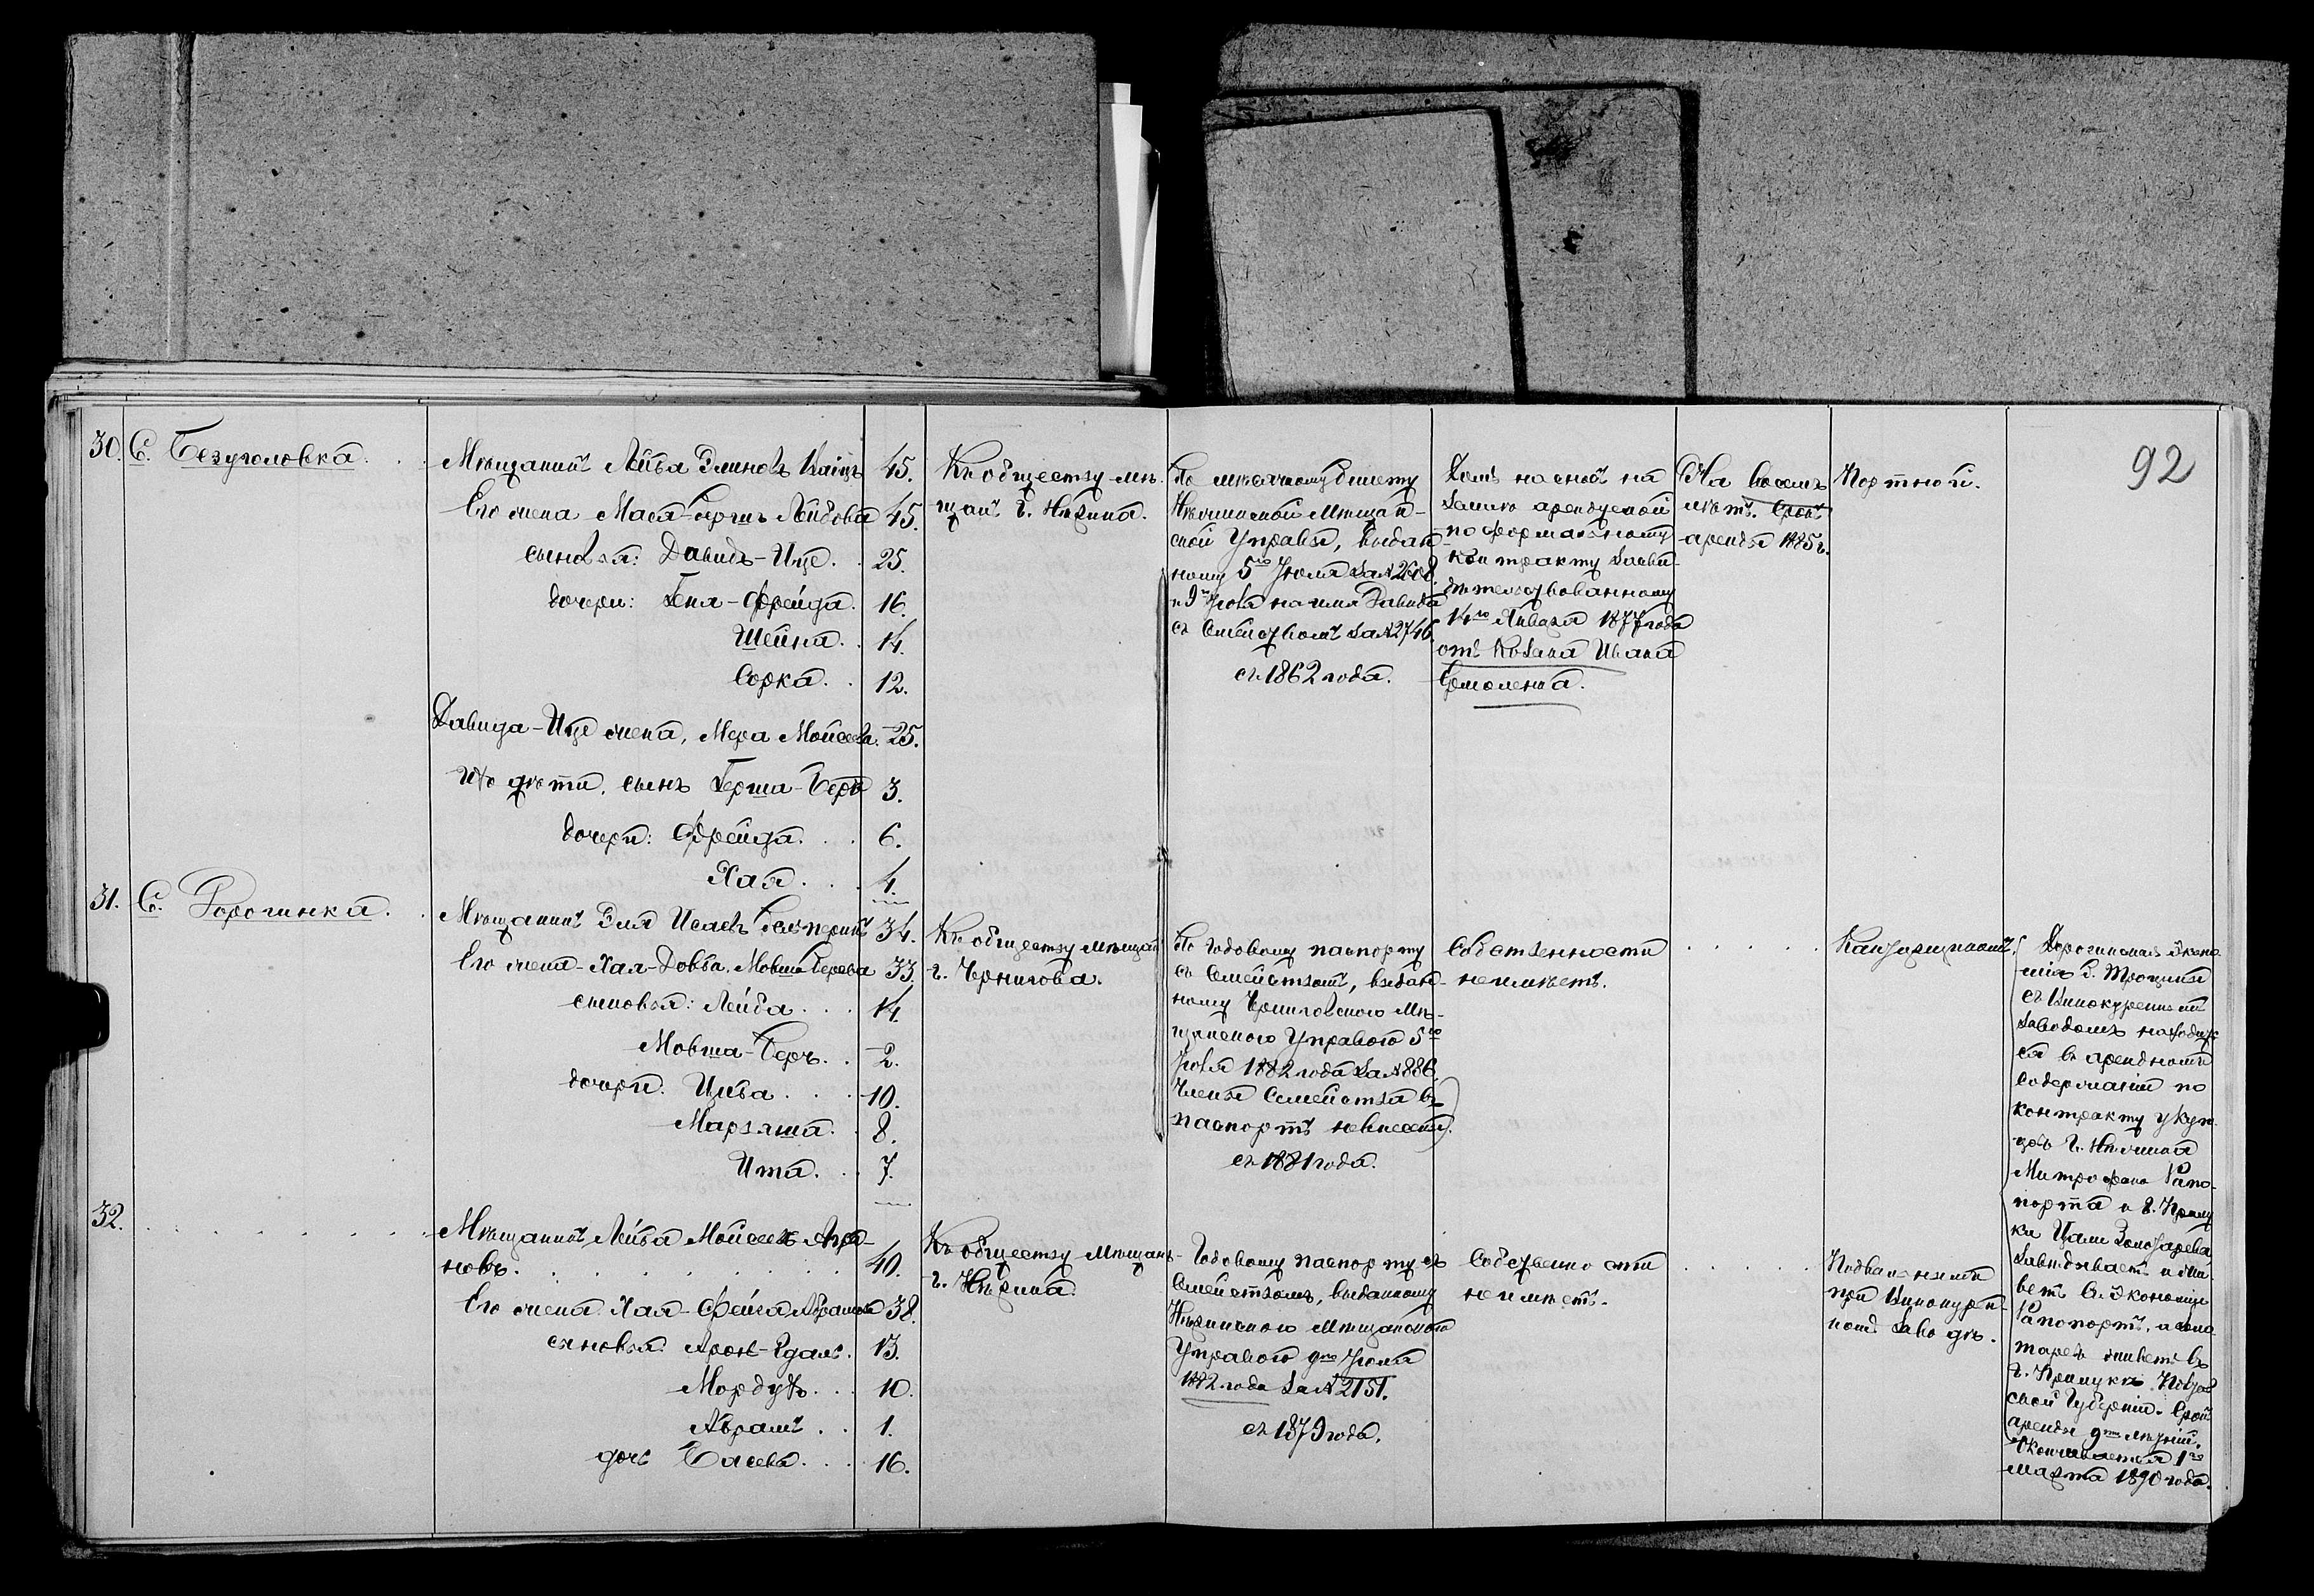 92
30. С. Безуголовка.
Мѣщанинъ Лейба Элиновъ
45.
Его жена Мася- Лейбова 45.
сыновья: Давидъ-Ице. 25.
дочери: Геня-Фрейда. 16.
Шейна. 14.
Сорка. 12.
Давида-Ице жена, Мера Моисеева. 25.
Ихъ дѣти, сынъ Герша-Беръ 3.
дочери: Фрейда. 6.
Хая. 4.
Къ обществу мѣ-
щанъ г. Нѣжина.
По билету
Нѣжинской Мѣщан-
ской Управы, выдан-
ному 5го Іюля за № 2608.
и 9го Іюля на имя Давида
съ Семействомъ за № 2746.
съ 1862 года.
Домъ на снос на
землю арендуемой
по формальному
контракту засви-
дѣтельствованному
14го Января 1877 года
отъ Козака Ивана
Ермоленка.
На восемь
лѣтъ. Срокъ
аренды 1885 г.
Портной.
31. С. Дорогинка.
Мѣщанинъ Эля Исаевъ Гальперинъ 34.
Его жена Хая-Довба Мовша-Берова 33.
сыновья: Лейба. 14.
Мовша-Беръ. 2.
дочери. Цива. 10.
Марьяша. 8.
Ита. 7.
Къ обществу мѣщанъ
г. Чернигова.
По годовому паспорту
съ Семействомъ, выдан-
ному Черниговскою Мѣ-
щанскою Управою 5го
Іюля 1882 года за № 886.
Члены Семейства въ
паспортъ не внесены.
съ 1881 года.
Собственности
не имѣетъ.
Канцеляристъ.
Дорогинская Эконо-
мія Г. Троцкой
съ Винокуреннымъ
заводомъ находит-
ся въ арендномъ
содержаніи по
контракту у Куп-
цовъ г. Нѣжина
Митрофана Рапо-
порта и г. Прилу-
ки Цали Золотарева
Завѣдываетъ и жи-
ветъ въ Экономіи
Рапопортъ, а Золо-
таревъ живетъ въ
г. Прилукахъ Полтав-
ской Губерніи. Срокъ
аренды 9ти лѣтній.
Оканчивается 1го
Марта 1890 года.
32.
Мѣщанинъ Лейба Моисеевъ Агра-
новъ. 40.
Его жена Хая-Фейга Абрамова 38.
сыновья Аронъ-Удаль. 13.
Мордухъ. 10.
Абрамъ. 1.
дочь Басева. 16.
Къ обществу мѣщанъ
г. Нѣжина.
Годовому паспорту съ
Семействомъ, выданному
Нѣжинскою Мѣщанскою
Управою 9го Іюля
1882 года за № 2151.
съ 1879 года.
Собственности
не имѣетъ.
Подвальнымъ
при Винокурен-
номъ заводѣ.